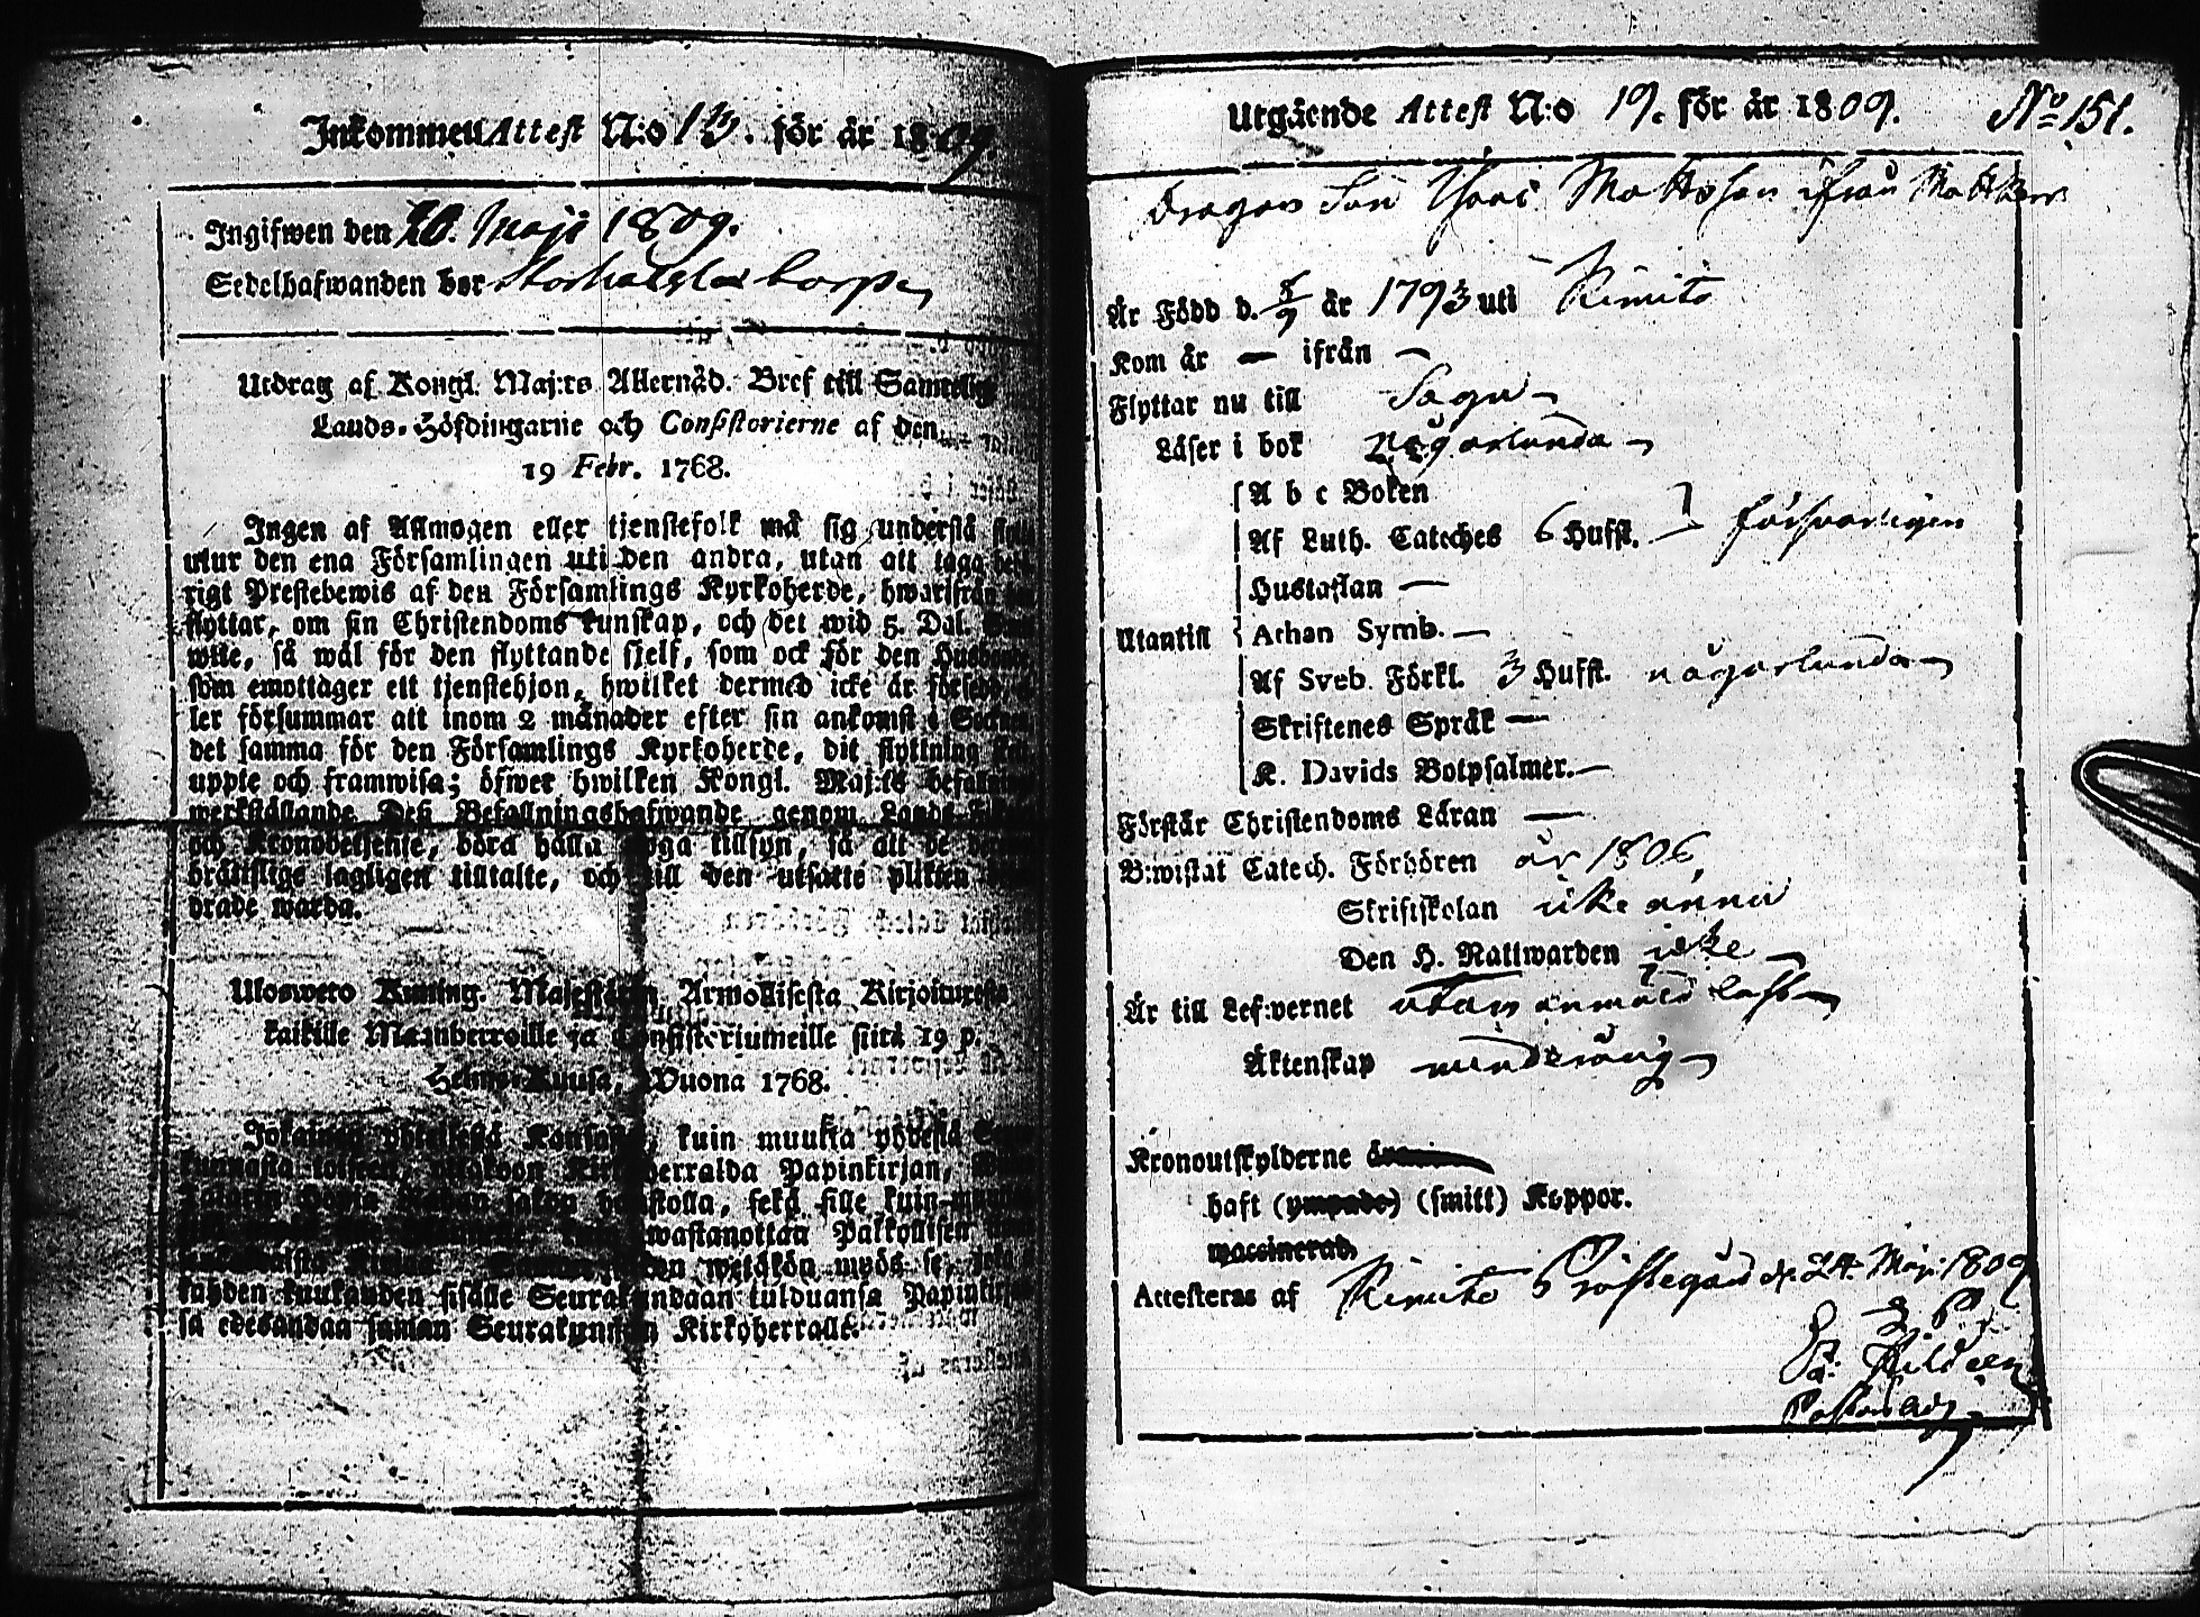 Inkommen Attest N:o 13. för år 1809
Ingifwen den 20. Maji 1809.
Sedelhafwanden bor
Utdrag af Kongl. Maj:ts Allernåd. Bref till Samtelige
Lands-Höfdingarne och Consistorierne af den
19 Febr. 1768.
Ingen af Allmogen eller tjenstefolk må sig understå
utur den ena Församlingen uti den andra, utan att taga
rigt Prestebewis af den Församlings Kyrkoherde, hwarifrån
flyttar, om sin Christendoms kunskap, och det wid 5. Dal.
wite, så wäl för den flyttande sjelf, som ock för den
som emottager ett tjenstehjon, hwilket dermed icke är försedd
ler försummar att inom 2 månader efter sin ankomst i
det samma för den Församlings Kyrkoherde, dit flyttning
uppte och framwisa; öfwer hwilken Kongl. Maj:ts
werkställande Deß Befallningshafwande genom
och Kronobetjente, böra hålla noga tillsyn, så att de
brättslige lagligen tilltalte, och till den utsatte plikten
drade warda.
Ulosweto Kuning. Majestätin Armollisesta Kirjoituxesta
kaikille Maanherroille ja Consistoriumeille siitä 19 p.
Helme-Kuusa, Wuona 1768.
Jokainen yhteisestä Kansasta, kuin muukta
Kirkoherralda Papinkirjan,
sakon sekä sille kuin
wastanottaa Palkollisen
wetäkön myös se,
kahden kuukauden sisälle Seurakundaan tulduansa Papinkirjan
sa edesandaa saman Seurakunnan Kirkoherralle.
Utgående Attest N:o 19. för år 1809. No 151.
Dragon Son Isaac Mattsson ifrån
Är Född d. 8/9 år 1793 uti Rimito
Kom år — ifrån —
Flyttar nu till Sagu
Läser i bok någorlunda
A b c Boken
Af Luth. Cateches 6 Hufst. försvarligen
Hustaflan —
Utantill Athan Symb. —
Af Sveb. Förkl. 3 Hufst. någorlunda
Skriftenes Språk —
K. Davids Botpsalmer. —
Förstår Christendoms Läran —
B:wistat Catech. Förhören år 1806
Skriftskolan icke ännu
Den H. Nattwarden icke
Är till Lef:vernet utan anmärkt last
Äktenskap minderårig
Kronoutskylderne
haft (ympade) (smitt) Koppor.
waccinerad.
Attesteras af Rimito Prästegård d. 24. Maji 1809